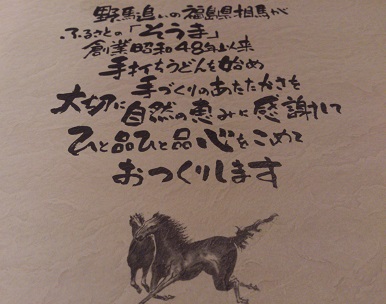 野馬追いの福島県相馬が
ふるさとの「そうま」
創業昭和48年以来
手打ちうどんを始め
手づくりのあたたかさを
大切に自然の恵みに感謝して
ひと品ひと品心をこめて
おつくりします